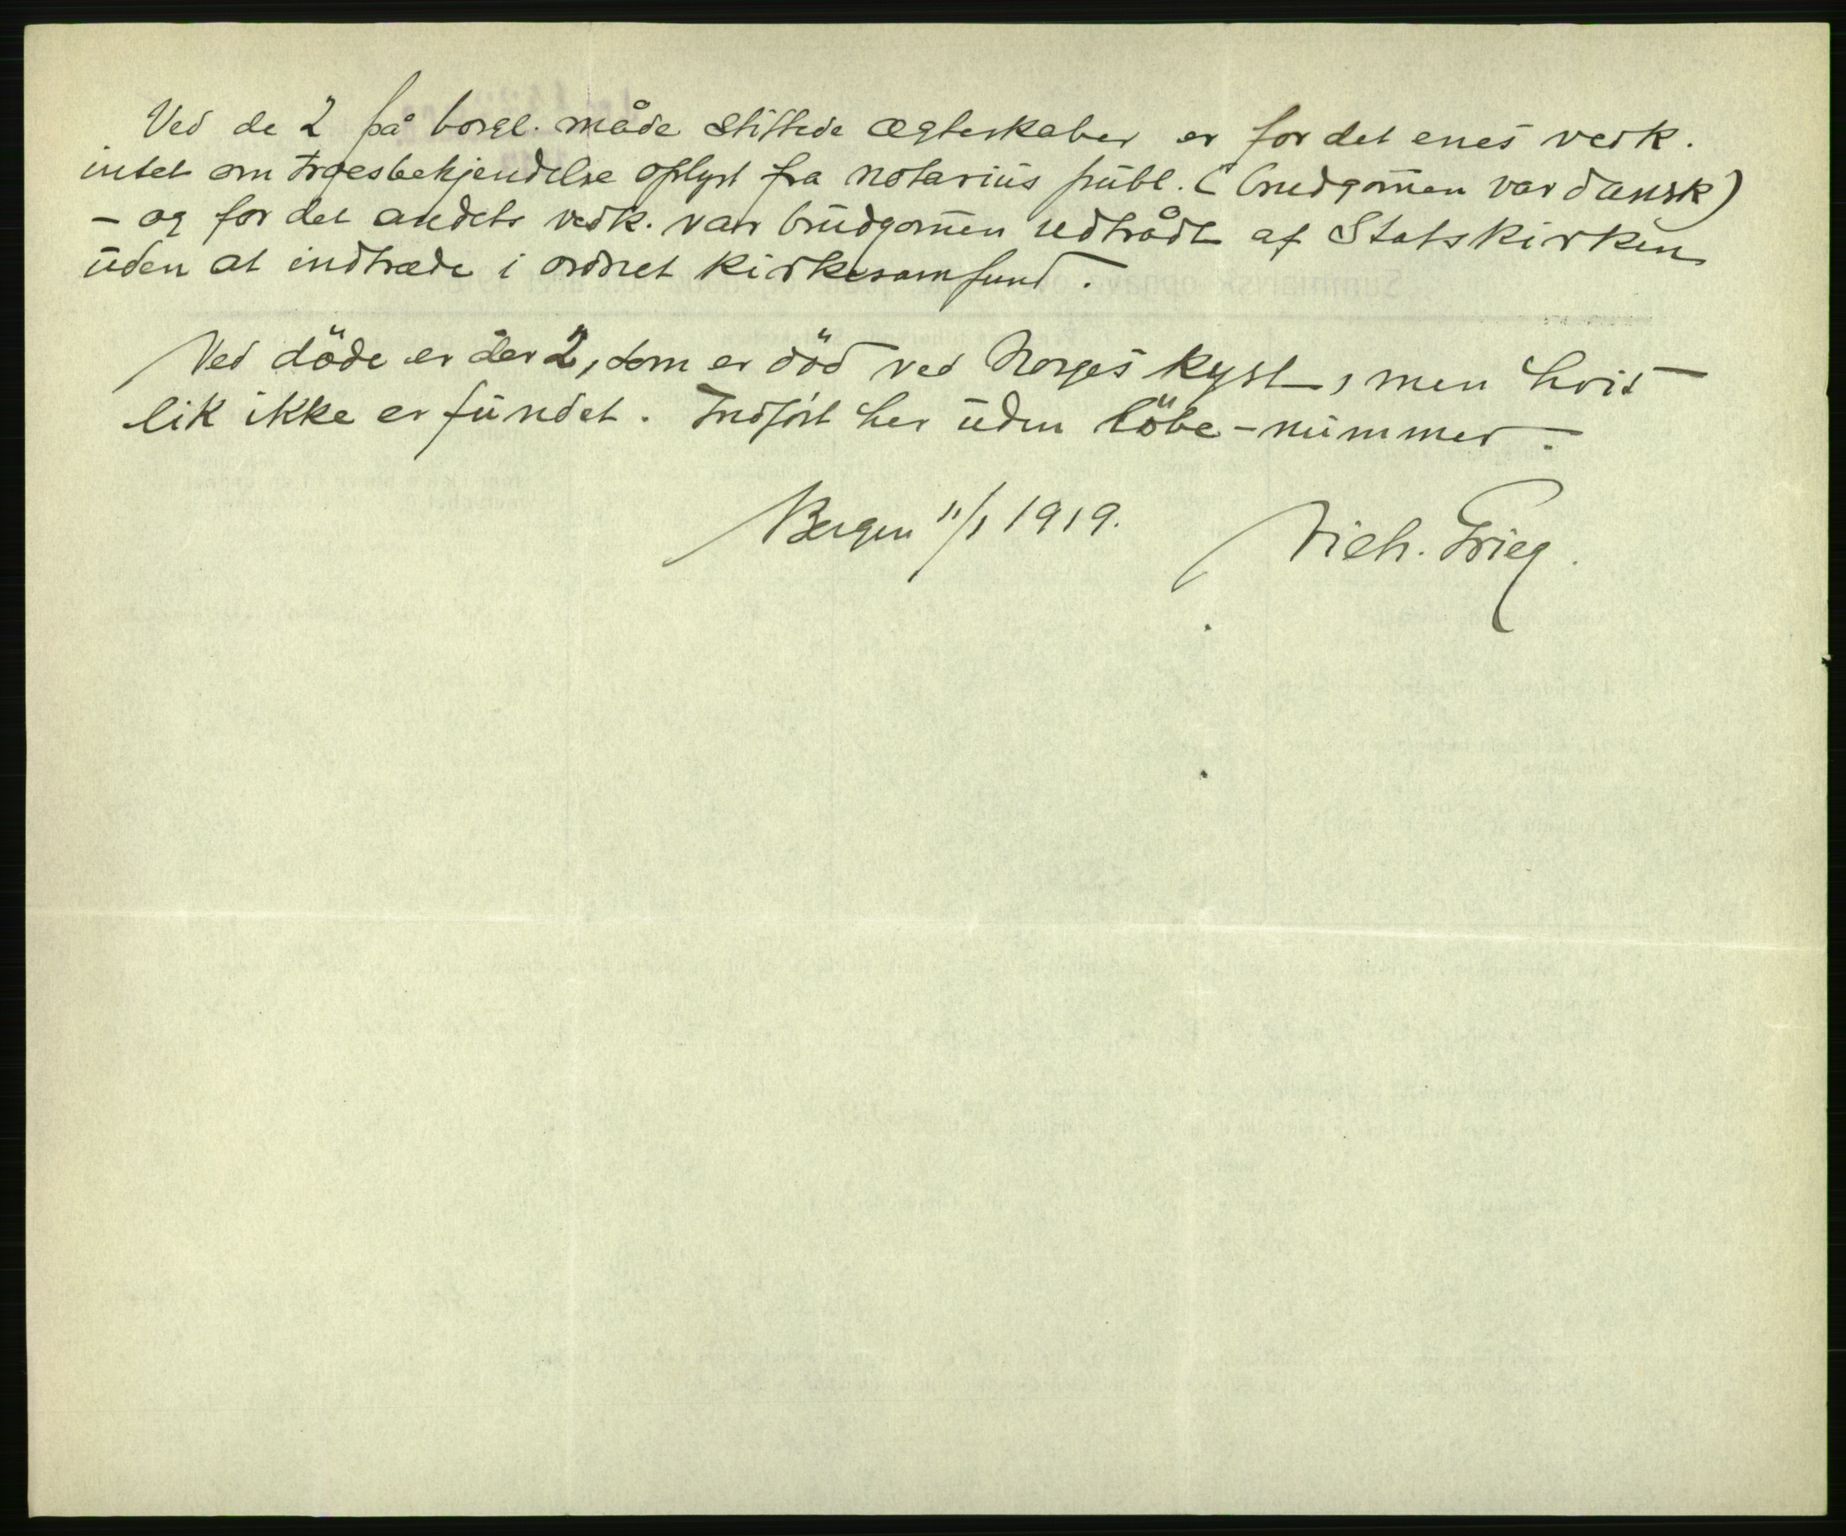 Ved de 2 på borgl. måde stiftede ægteskaber er for det enes vedk.
intet om troesbekjendelse oplyst fra notarius públ. (brudgom̅en var dansk)
- og for det andets vedk. var brúdgom̅en udtrådt af Statskirken
úden at indtræde i ordnet kirkesamfund.
Ved döde er der 2, som er död ved Norges kyst, men hvis
lik ikke er fúndet. Indfört her úden löbe-númmer.
Bergen 11/1 1919. Nich. Grieg.